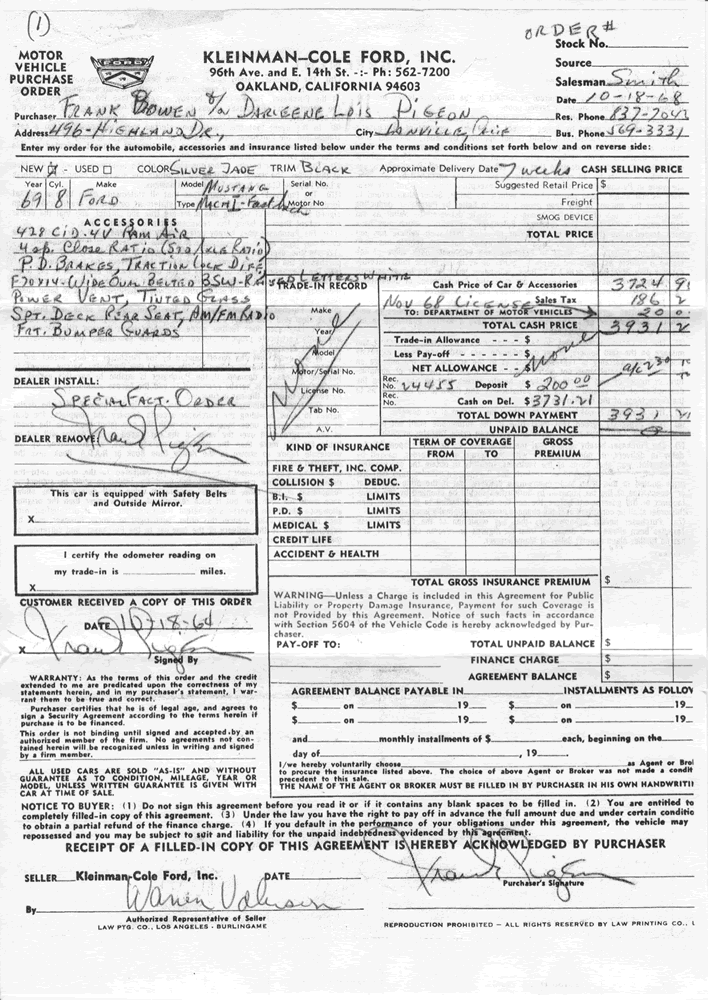 (1)
ORDER #
MOTOR VEHICLE PURCHASE ORDER
FORD
KLEINMAN—COLE FORD, INC.
96th Ave. and E. 14th St. -:- Ph: 562-7200
OAKLAND, CALIFORNIA 94603
Stock No.
Source
Salesman Smith
Date 10-18-68
Purchaser FRANK BOWEN %/ DARLEENE LOIS PIGEON
Res. Phone 837-7043
Address 496-HIGHLAND DR, City DANVILLE, Calif
Bus. Phone 569-3331
Enter my order for the automobile, accessories and insurance listed below under the terms and conditions set forth below and on reverse side:
NEW - USED COLOR SILVER JADE TRIM BLACK Approximate Delivery Date 7 weeks CASH SELLING PRICE
Year Cyl. Make Model MUSTANG Serial No. or Motor No Suggested Retail Price $
69 8 FORD Type MACH I-Fastback Freight
SMOG DEVICE
ACCESSORIES TOTAL PRICE
428 CID. 4V RAM AIR
4 sp. Close RATIO (STD AXLE RATIO)
P.D. BRAKES, TRACTION LOCK DIFF,
F70X14-WIDE OVAL BELTED BSW-RAISED LETTERS WHITE
POWER VENT, TINTED GLASS
SPT. DECK REAR SEAT, AM/FM RADIO
FRT. BUMPER GUARDS
TRADE-IN RECORD
Make
Year
Model
Motor/Serial No.
License No.
Tab No.
A.V.
None
Cash Price of Car & Accessories 3724 9
NOV 68 LICENSE Sales Tax 186 2
TO: DEPARTMENT OF MOTOR VEHICLES 20 0
TOTAL CASH PRICE 3931 2
Trade-in Allowance - - - $
Less Pay-off - - - - - - $
NET ALLOWANCE - - $ None
Rec. No. 24455 Deposit $ 200 00
Rec. No. Cash on Del. $3731.21
TOTAL DOWN PAYMENT 3931 21
UNPAID BALANCE 0
DEALER INSTALL:
SPECIAL FACT. ORDER
DEALER REMOVE:
Frank Pigeon
This car is equipped with Safety Belts and Outside Mirror.
X
I certify the odometer reading on
my trade-in is miles.
X
CUSTOMER RECEIVED A COPY OF THIS ORDER
DATE 10-18-64
X Frank Pigeon
Signed By
KIND OF INSURANCE TERM OF COVERAGE FROM TO GROSS PREMIUM
FIRE & THEFT, INC. COMP.
COLLISION $ DEDUC.
B.I. $ LIMITS
P.D. $ LIMITS
MEDICAL $ LIMITS
CREDIT LIFE
ACCIDENT & HEALTH
TOTAL GROSS INSURANCE PREMIUM $
WARNING—Unless a Charge is included in this Agreement for Public
Liability or Property Damage Insurance, Payment for such Coverage is
not Provided by this Agreement. Notice of such facts in accordance
with Section 5604 of the Vehicle Code is hereby acknowledged by Pur-
chaser.
PAY-OFF TO: TOTAL UNPAID BALANCE $
FINANCE CHARGE $
AGREEMENT BALANCE $
AGREEMENT BALANCE PAYABLE IN INSTALLMENTS AS FOLLOW
$ on 19 $ on 19
$ on 19 $ on 19
and monthly installments of $ each, beginning on the
day of , 19
I/we hereby voluntarily choose as Agent or Brol
to procure the insurance listed above. The choice of above Agent or Broker was not made a condit
precedent to this sale.
THE NAME OF THE AGENT OR BROKER MUST BE FILLED IN BY PURCHASER IN HIS OWN HANDWRITI
WARRANTY: As the terms of this order and the credit
extended to me are predicated upon the correctness of my
statements herein, and in my purchaser's statement, I war-
rant them to be true and correct.
Purchaser certifies that he is of legal age, and agrees to
sign a Security Agreement according to the terms herein if
purchase is to be financed.
This order is not binding until signed and accepted by an
authorized member of the firm. No agreements not con-
tained herein will be recognized unless in writing and signed
by a firm member.
ALL USED CARS ARE SOLD "AS-IS" AND WITHOUT
GUARANTEE AS TO CONDITION, MILEAGE, YEAR OR
MODEL, UNLESS WRITTEN GUARANTEE IS GIVEN WITH
CAR AT TIME OF SALE.
NOTICE TO BUYER: (1) Do not sign this agreement before you read it or if it contains any blank spaces to be filled in. (2) You are entitled to
completely filled-in copy of this agreement. (3) Under the law you have the right to pay off in advance the full amount due and under certain conditic
to obtain a partial refund of the finance charge. (4) If you default in the performance of your obligations under this agreement, the vehicle may
repossessed and you may be subject to suit and liability for the unpaid indebtedness evidenced by this agreement.
RECEIPT OF A FILLED-IN COPY OF THIS AGREEMENT IS HEREBY ACKNOWLEDGED BY PURCHASER
SELLER Kleinman-Cole Ford, Inc. DATE Frank Pigeon
Purchaser's Signature
By Warren
Authorized Representative of Seller
LAW PTG. CO., LOS ANGELES - BURLINGAME
REPRODUCTION PROHIBITED — ALL RIGHTS RESERVED BY LAW PRINTING CO., L